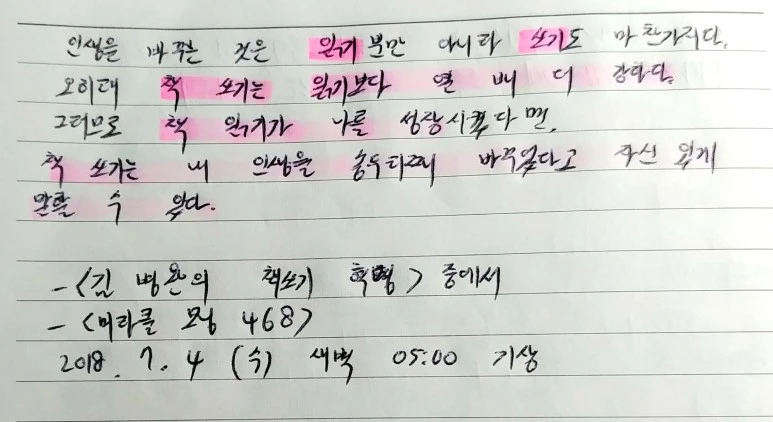 인생을 바꾸는 것은 읽기 뿐만 아니라 쓰기도 마찬가지다.
오히려 책 쓰기는 읽기보다 열 배 더 강하다.
그러므로 책 읽기가 나를 성장시켰다면,
책 쓰기는 내 인생을 송두리째 바꾸었다고 자신 있게
말할 수 있다.
- <김병완의 책쓰기 혁명> 중에서
- <미라클 모닝 468>
2018. 7. 4 (수) 새벽 05:00 기상